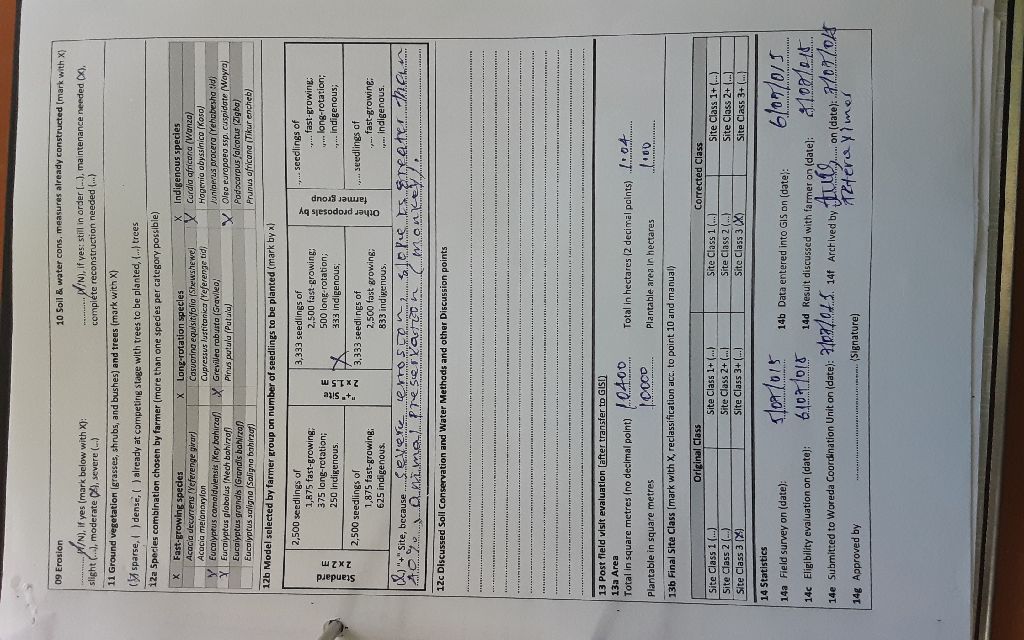 09 Erosion
(Y/N), if yes (mark below with X):
slight (...), moderate (X), severe (...)
10 Soil & water cons. measures already constructed (mark with X)
(Y/N), if yes: still in order (...), maintenance needed (X),
complete reconstruction needed (...)
11 Ground vegetation (grasses, shrubs, and bushes) and trees (mark with X)
sparse, ( ) dense, ( ) already at competing stage with trees to be planted, (..) trees
12a Species combination chosen by farmer (more than one species per category possible)
X Fast-growing species X Long-rotation species X Indigenous species
Acacia decurrens (Yeferenge girar) Casuarina equisitifolia (Shewshewe) X Cordia africana (Wanza)
Acacia melanoxylon Cupressus lustitanica (Yeferenge tid) Hagenia abyssinica (Koso)
X Eucalyptus camaldulensis (Key bahirzaf) X Grevillea robusta (Gravilea) Juniperus procera (Yehabesha tid)
X Eucalyptus globulus (Nech bahirzaf) Pinus patula (Patula) X Olea europaea ssp. cuspidate (Wayra)
Eucalyptus grandis (Grandis bahirzaf) Podocarpus falcatus (Zigba)
Eucalyptus saligna (Saligna bahirzaf) Prunus africana (Tikur encheb)
12b Model selected by farmer group on number of seedlings to be planted (mark by x)
Standard
2 x 2 m
2,500 seedlings of
1,875 fast-growing;
375 long-rotation;
250 indigenous.
2,500 seedlings of
1,875 fast-growing;
625 indigenous.
"+" Site
2 x 1.5 m
3,333 seedlings of
2,500 fast-growing;
500 long-rotation;
333 indigenous.
X
3,333 seedlings of
2,500 fast growing;
833 indigenous.
Other proposals by
farmer group
.... seedlings of
.... fast-growing;
.... long-rotation;
.... indigenous;
.... seedlings of
.... fast-growing;
.... indigenous.
(X) "+" Site, because severe erosion, slope is greater than
40%, animal preservation (monkey).
12c Discussed Soil Conservation and Water Methods and other Discussion points
13 Post field visit evaluation (after transfer to GIS!)
13a Area
Total in square metres (no decimal point) 10400 Total in hectares (2 decimal points) 1.04
Plantable in square metres 10000 Plantable area in hectares 1.00
13b Final Site Class (mark with X, reclassification acc. to point 10 and manual)
Original Class Corrected Class
Site Class 1 (...) Site Class 1+ (...) Site Class 1 (...) Site Class 1+ (...)
Site Class 2 (...) Site Class 2+ (...) Site Class 2 (...) Site Class 2+ (...)
Site Class 3 (X) Site Class 3+ (...) Site Class 3 (X) Site Class 3+ (...)
14 Statistics
14a Field survey on (date): 5/07/015 14b Data entered into GIS on (date): 6/07/015
14c Eligibility evaluation on (date): 6/07/015 14d Result discussed with farmer on (date):
14e Submitted to Woreda Coordination Unit on (date): 14f Archived by on (date):
14g Approved by (Signature)